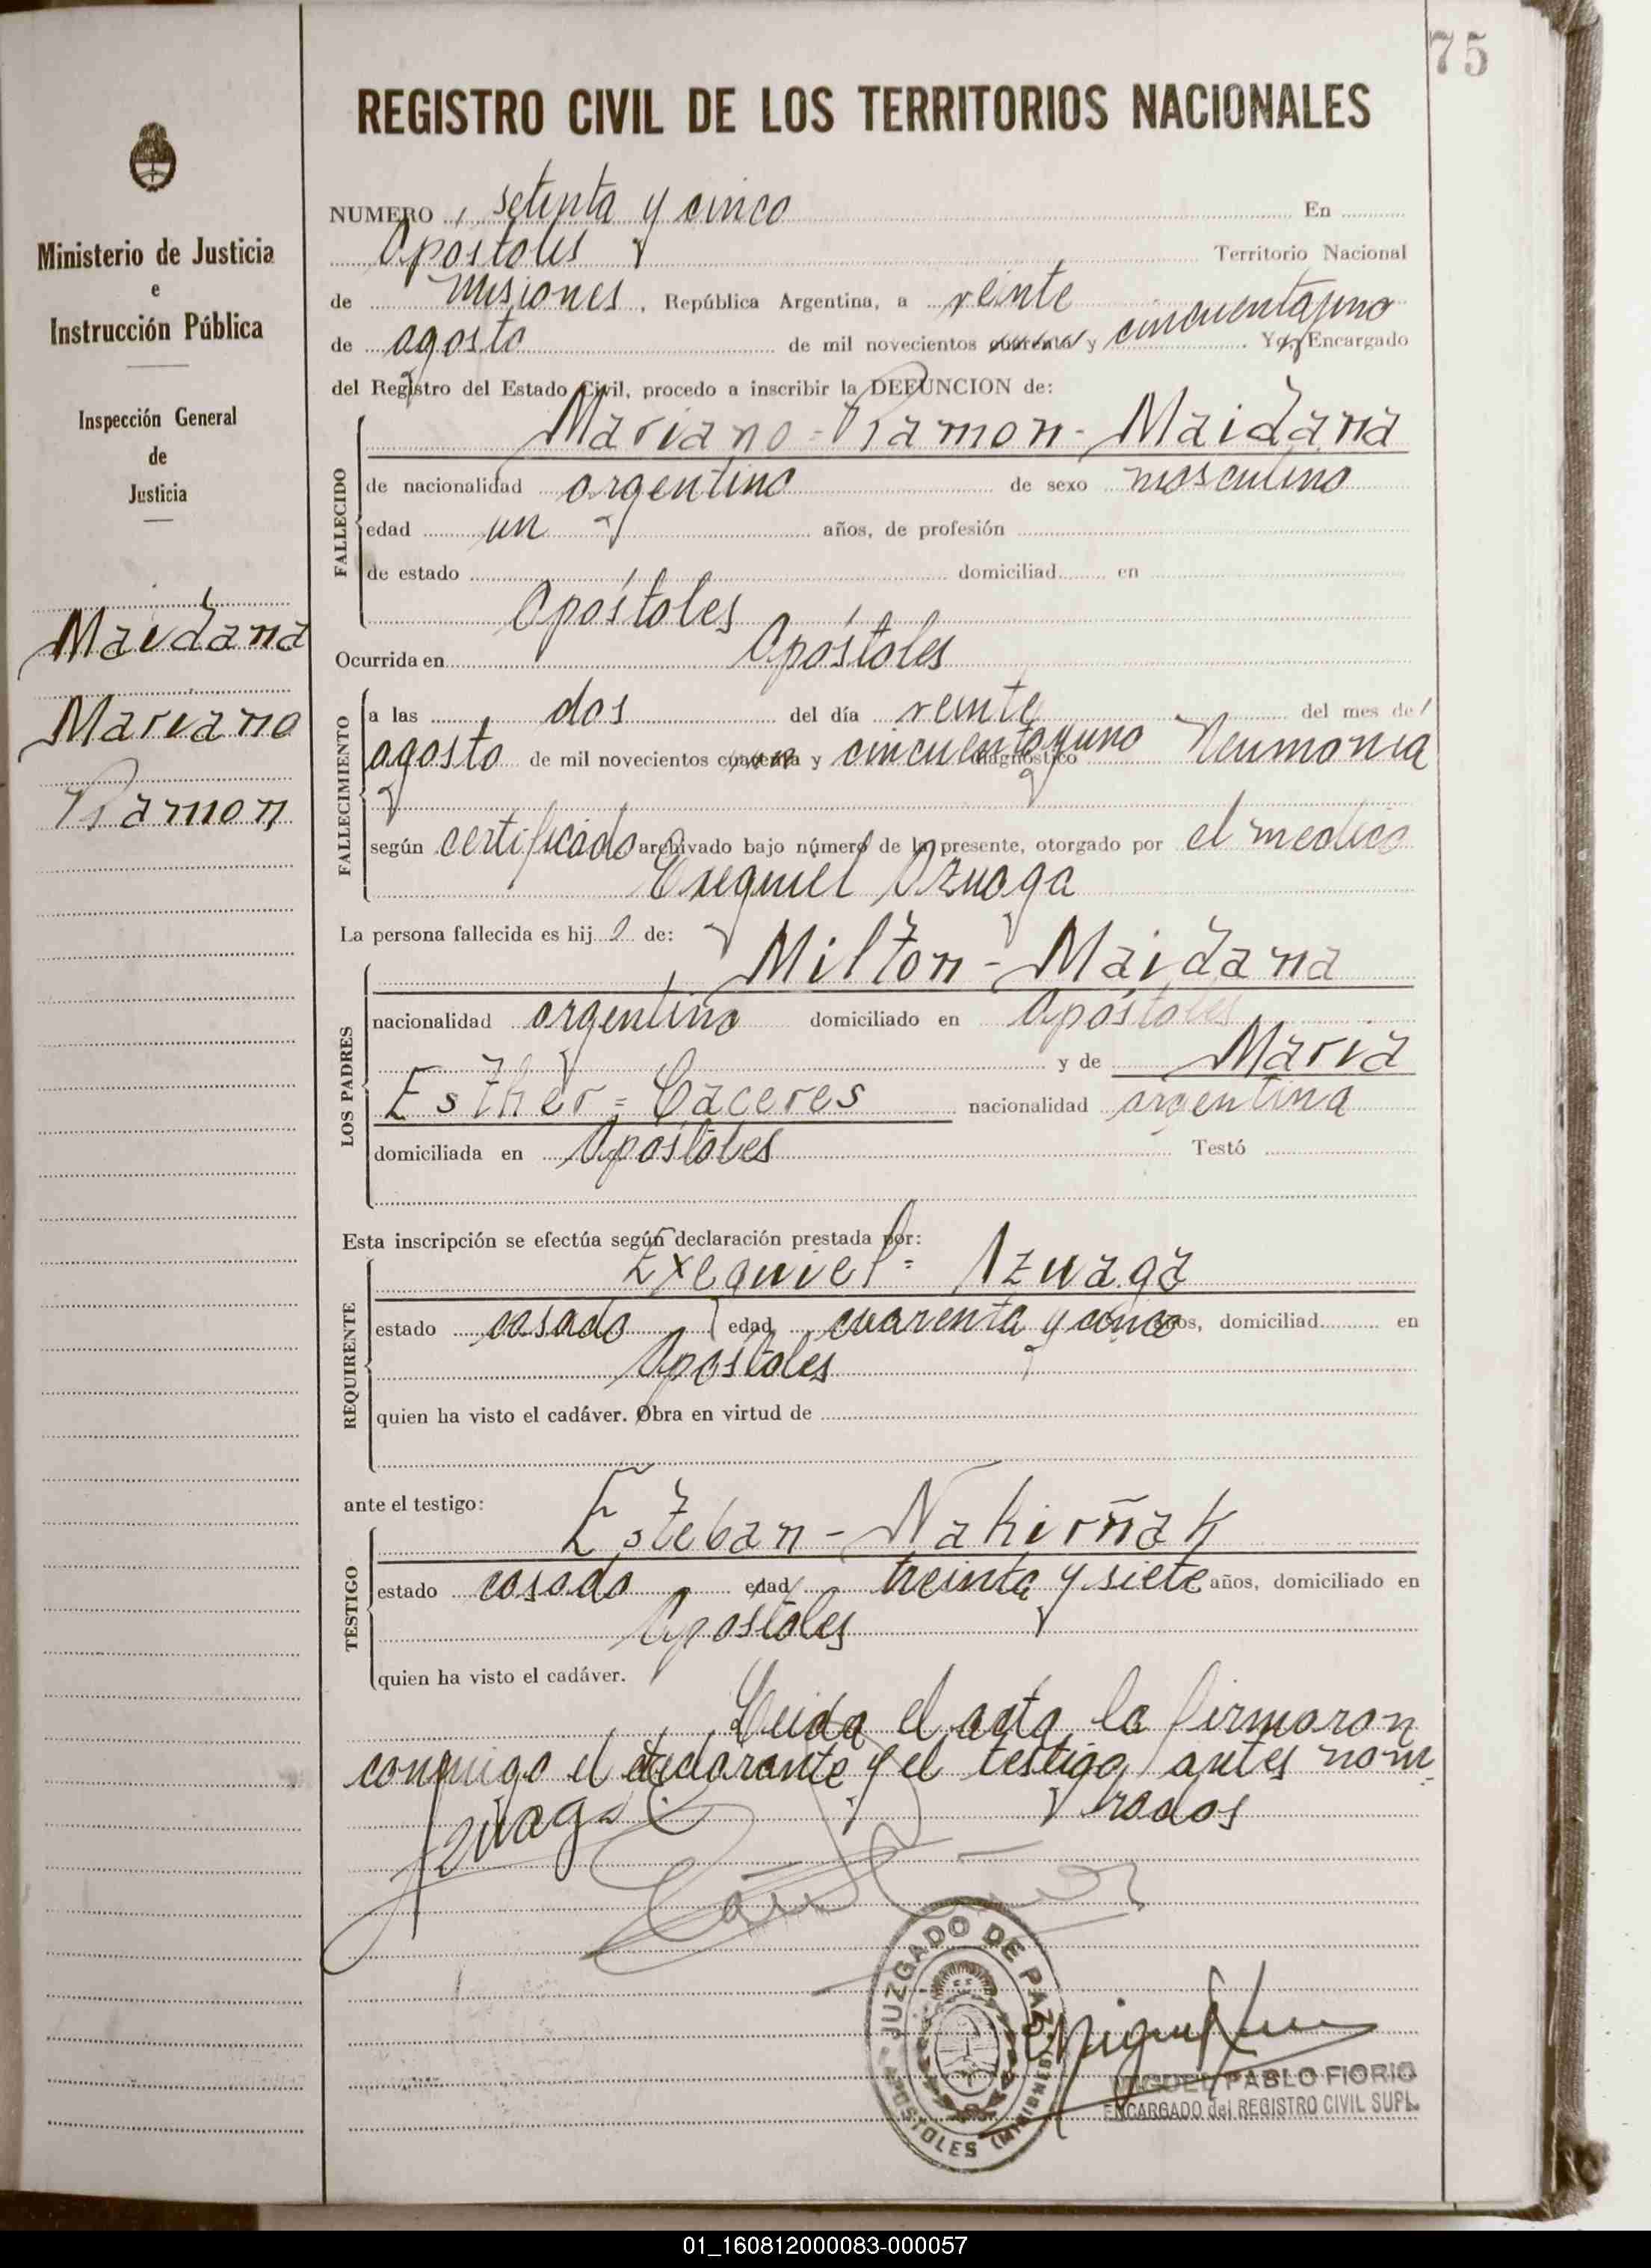 75
REGISTRO CIVIL DE LOS TERRITORIOS NACIONALES
Ministerio de Justicia
e
Instrucción Pública
Inspección General
de
Justicia
Maidana
Mariano
Ramon
NUMERO setenta y cinco En
Apóstoles Territorio Nacional
de Misiones, República Argentina, a veinte
de agosto de mil novecientos cuarenta y cincuentayuno. Yo, Encargado
del Registro del Estado Civil, procedo a inscribir la DEFUNCION de:
FALLECIDO
Mariano = Ramon - Maidana
de nacionalidad argentino de sexo masculino
edad un años, de profesión
de estado domiciliad en
Apóstoles
Ocurrida en Apóstoles
FALLECIMIENTO
a las dos del día veinte del mes de
agosto de mil novecientos cuarenta y cincuentayuno diagnóstico Neumonia
según certificado archivado bajo número de la presente, otorgado por el medico
Exequiel Azuaga
La persona fallecida es hijo de:
LOS PADRES
Milton - Maidana
nacionalidad argentino domiciliado en Apóstoles
y de Maria
Esther = Caceres nacionalidad argentina
domiciliada en Apóstoles Testó
Esta inscripción se efectúa según declaración prestada por:
REQUIRENTE
Exequiel = Azuaga
estado casado edad cuarenta y cinco años, domiciliad en
Apóstoles
quien ha visto el cadáver. Obra en virtud de
ante el testigo:
TESTIGO
Esteban - Nakirñak
estado casado edad treinta y siete años, domiciliado en
Apóstoles
quien ha visto el cadáver.
Leida el acta la firmaron
conmigo el declarante y el testigo antes nom-
brados
Azuaga
JUZGADO DE PAZ
APOSTOLES (MISIONES)
MIGUEL PABLO FIORIO
ENCARGADO del REGISTRO CIVIL SUPL.
01_160812000083-000057